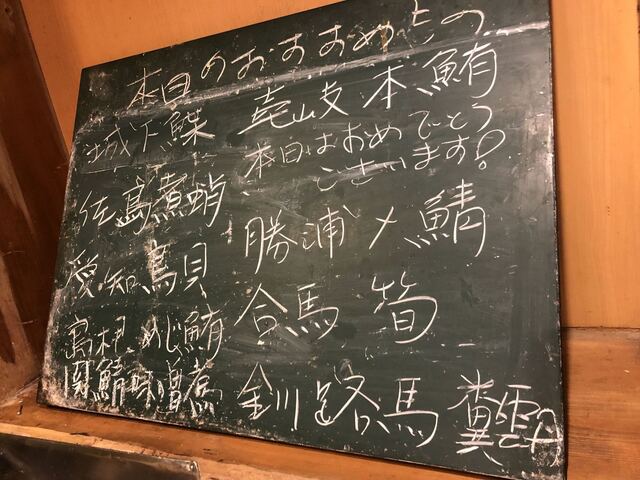 本日のおすすめもの
城下鰈
佐島煮蛸
愛知鳥貝
島根めじ鮪
関鯖味噌煮
壱岐本鮪
本日はおめでとう
ございます!
勝浦〆鯖
合馬筍
釧路馬糞雲丹